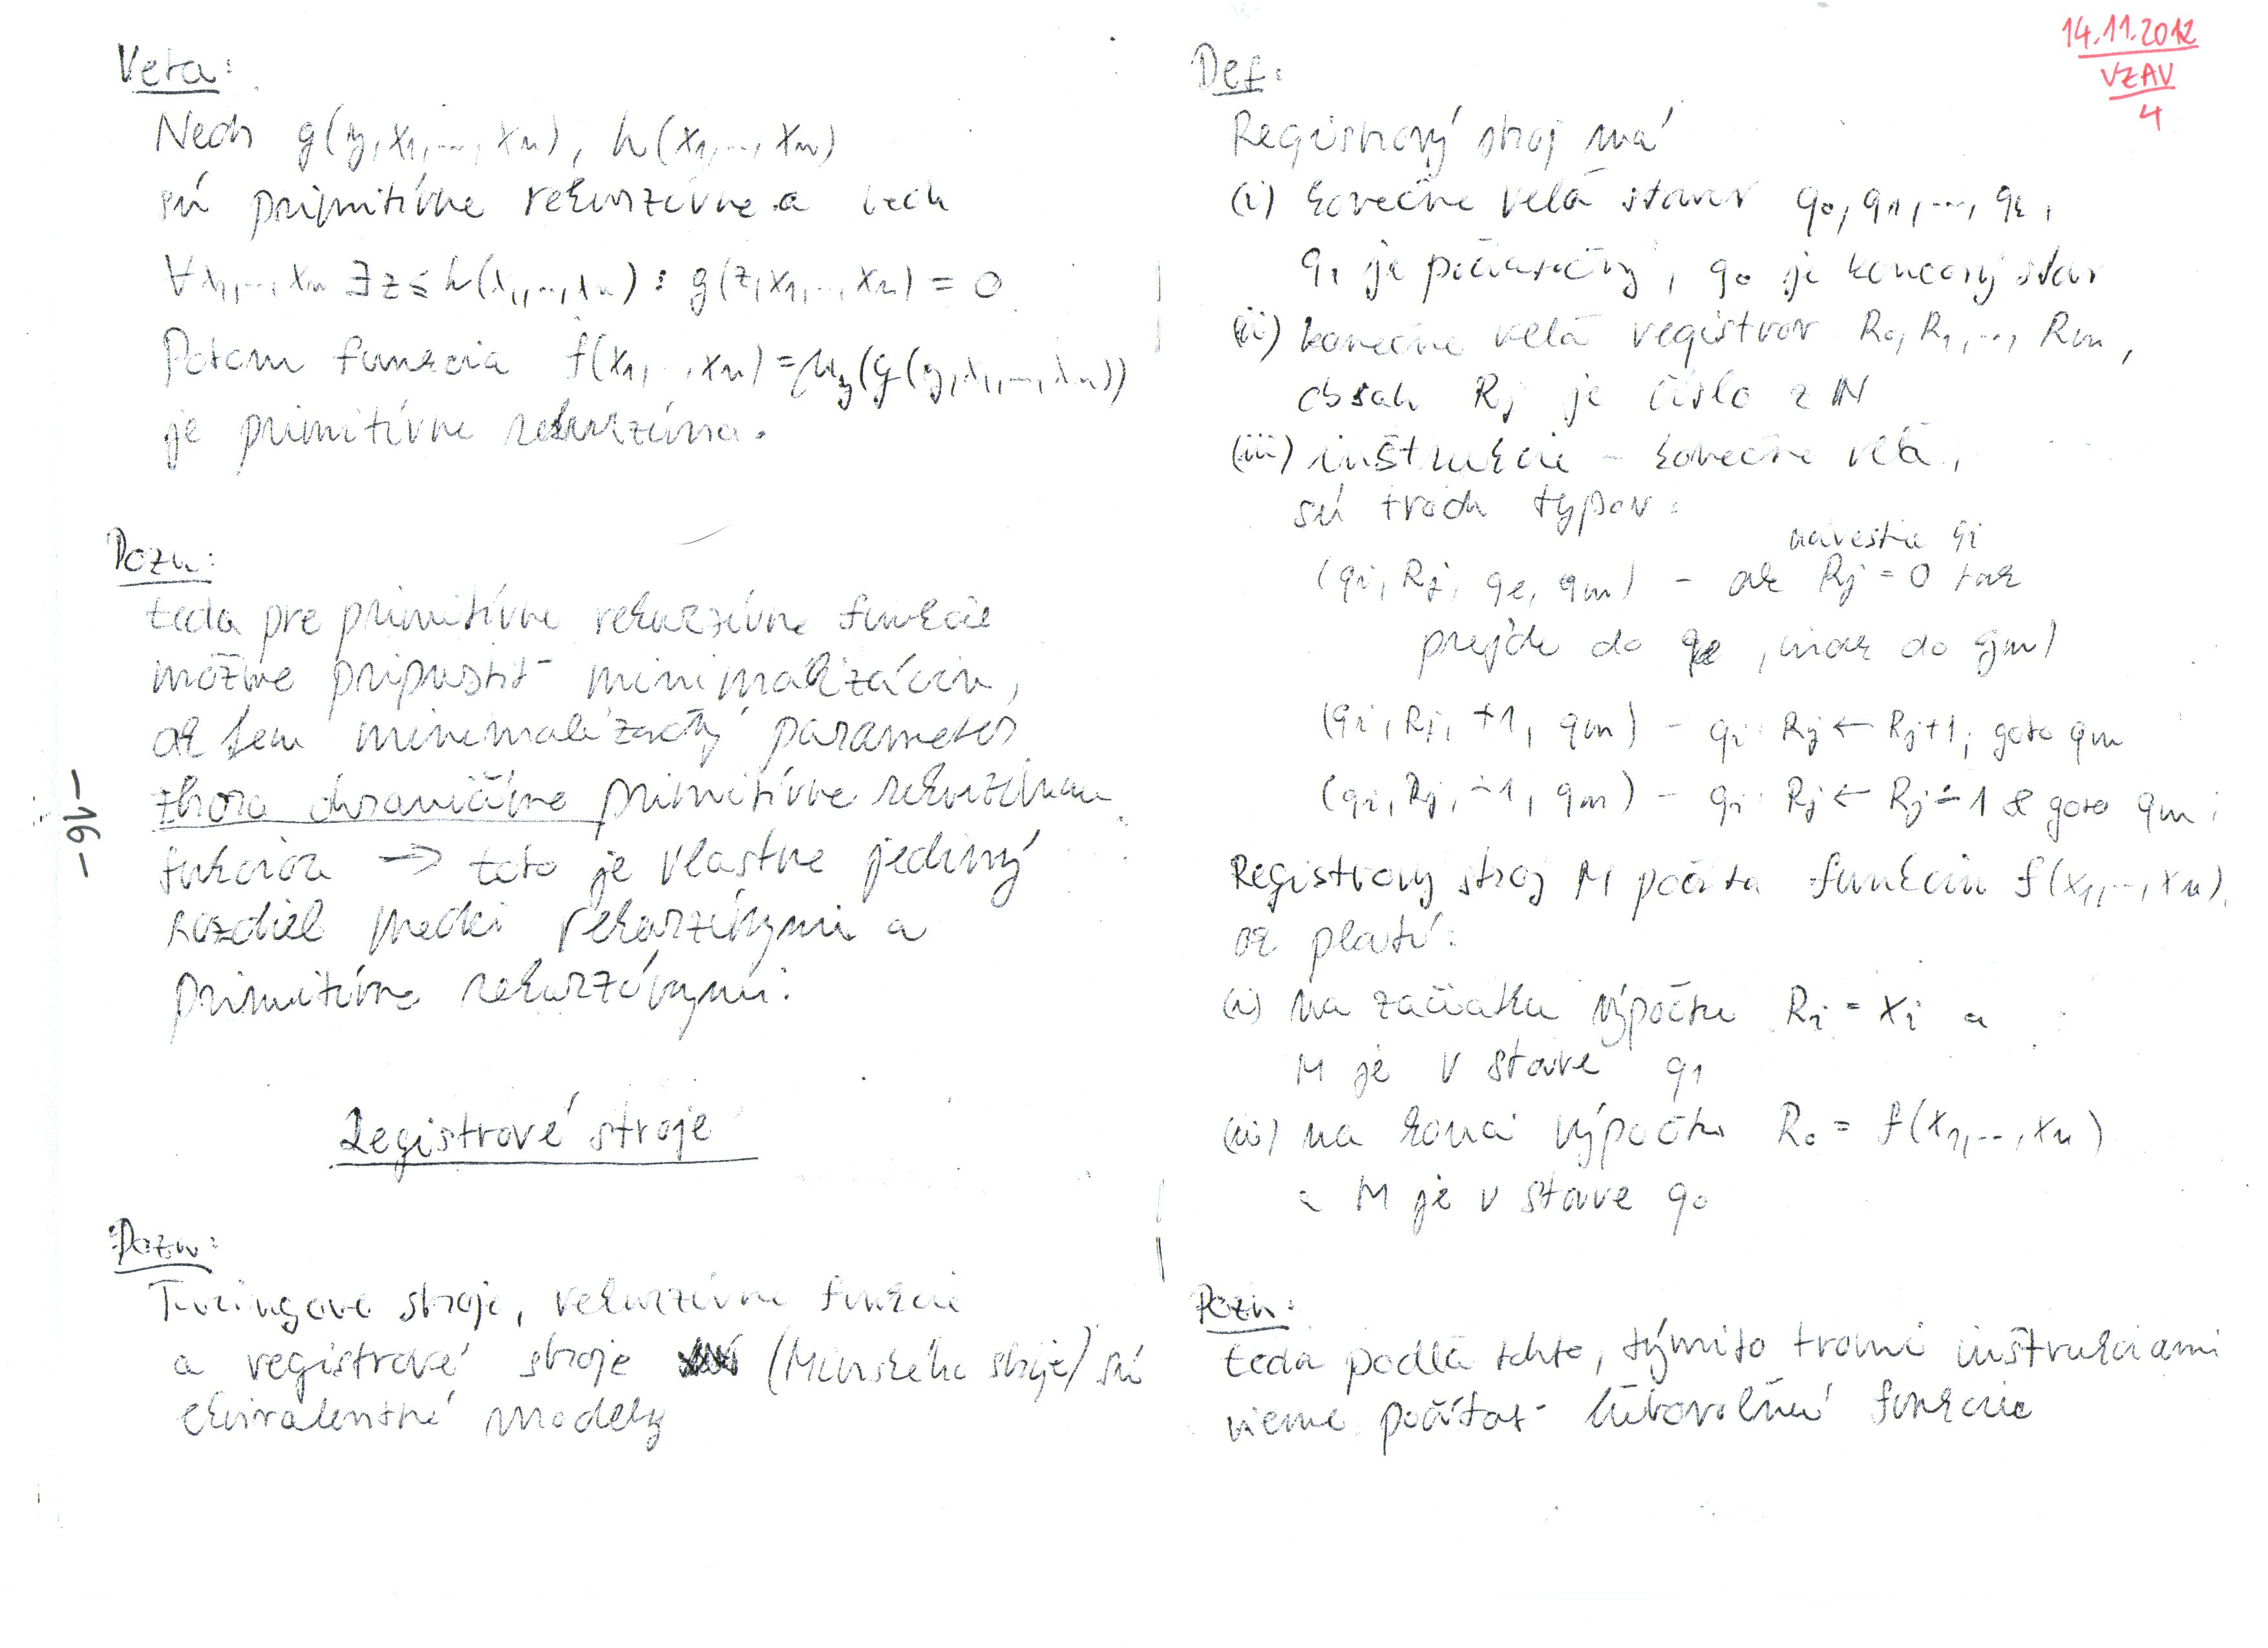 Veta:
Nech g(y,x₁,...,xₙ), h(x₁,...,xₙ)
sú primitívne rekurzívne a nech
∀x₁,...,xₙ ∃z≤h(x₁,...,xₙ): g(z,x₁,...,xₙ) = 0
Potom funkcia f(x₁,...,xₙ)=μy(g(y,x₁,...,xₙ))
je primitívne rekurzívna.
Pozn:
teda pre primitívne rekurzívne funkcie
možme pripustiť minimalizáciu,
ak len minimalizačný parameter
zhora ohraničíme primitívne rekurzívnou
funkciou → toto je vlastne jediný
rozdiel medzi rekurzívnymi a
primitívne rekurzívnymi.
Registrové stroje
Pozn:
Turingove stroje, rekurzívne funkcie
a registrové stroje (Minského stroje) sú
ekvivalentné modely
-16-
14.11.2012
VZAV
4
Def:
Registrový stroj má
(i) konečne veľa stavov q₀, q₁, ..., qₖ,
q₁ je počiatočný, q₀ je koncový stav
(ii) konečne veľa registrov R₀, R₁, ..., Rₘ,
obsah Rj je číslo z N
(iii) inštrukcie - konečne veľa,
sú troch typov:
návestie qi
(qi, Rj, qe, qm) - ak Rj = 0 tak
prejde do qe, inak do qm)
(qi, Rj, +1, qm) - qi: Rj ← Rj+1; goto qm
(qi, Rj, ∸1, qm) - qi: Rj ← Rj∸1 & goto qm;
Registrový stroj M počíta funkciu f(x₁,...,xₙ),
ak platí:
(i) na začiatku výpočtu Ri = xi a
M je v stave q₁
(ii) na konci výpočtu R₀ = f(x₁,...,xₙ)
a M je v stave q₀
Pozn:
teda podľa tohto, týmito tromi inštrukciami
vieme počítať ľubovoľnú funkciu